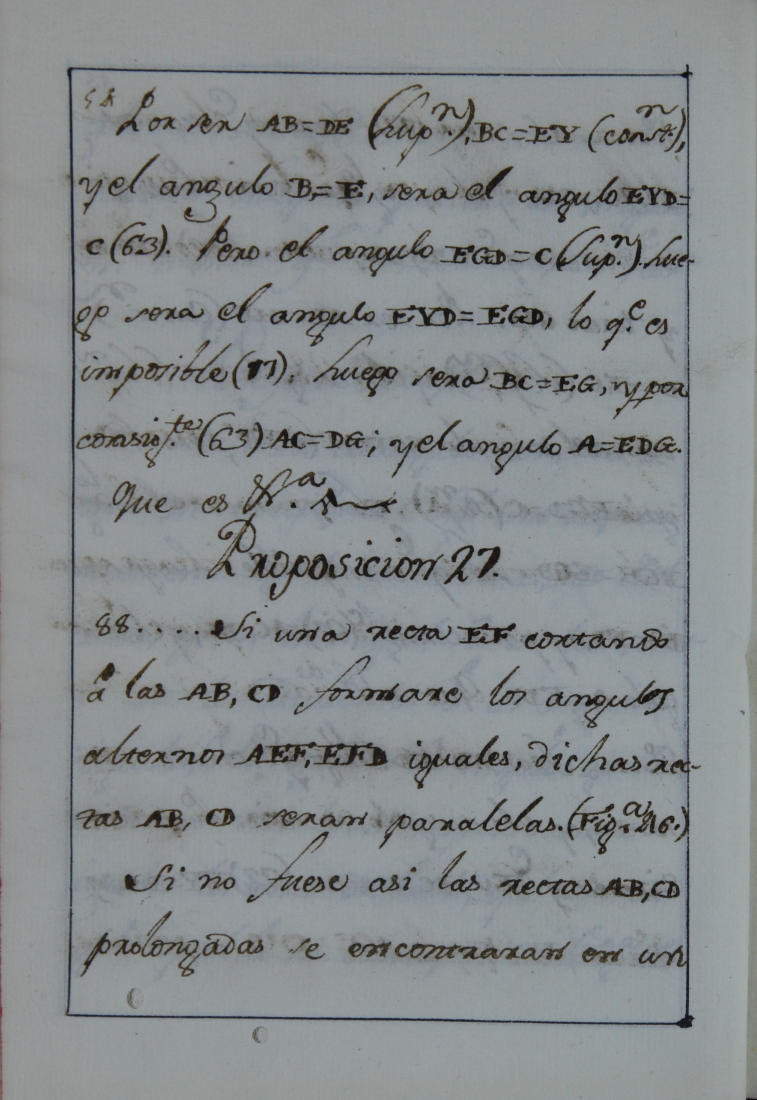 54
Por ser AB=DE (sup.ⁿ), BC=EY (const.ⁿ),
y el angulo B=E, sera el angulo EYD=
C (63). Pero el angulo EGD=C (sup.ⁿ). Lue-
go sera el angulo EYD=EGD, lo q.ᵉ es
imposible (77). Luego sera BC=EG, y por
consig.ᵗᵉ (63) AC=DG; y el angulo A=EDG.
Que es &.ᵃ
Proposicion 27.
88.... Si una recta EF cortando
á las AB, CD formare los angulos
alternos AEF, EFD iguales, dichas rec-
tas AB, CD seran paralelas. (Fig.ᵃ 46.)
Si no fuese asi las rectas AB, CD
prolongadas se encontraran en un